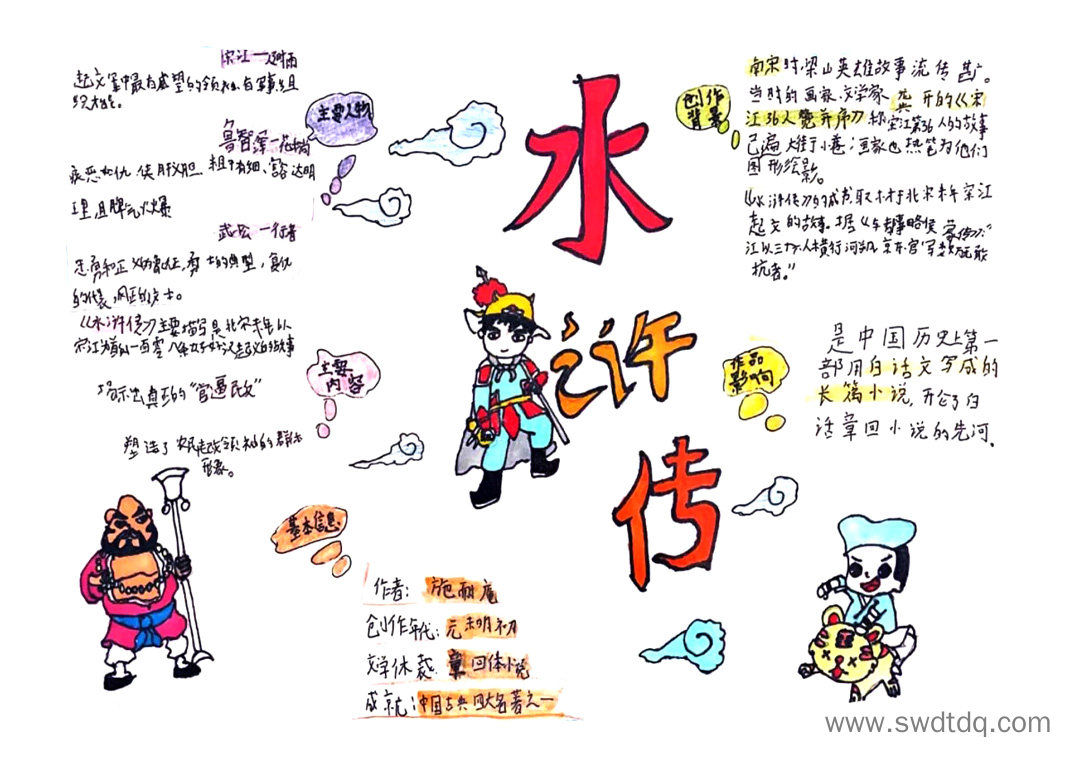 水浒传
主要人物
宋江一及时雨
起义军中最有威望的领袖
鲁智深一花和尚
疾恶如仇 侠肝义胆 粗中有细、豁达明
理且脾气火爆
武松一行者
忠勇和正义的象征,勇士的典型,复仇
主要内容
《水浒传》主要描写是北宋末年以
宋江为首的一百零八
揭示出真正的“官逼民改”
塑造了农民起义领袖的群体
形象。
基本信息
作者:施耐庵
创作年代:元末明初
文学体裁:章回体小说
成就:中国古典四大名著之一
创作
背景
南宋时,梁山英雄故事流传甚广。
当时的画家、文学家
江36人赞并序》称宋江等36人的故事
已遍大街小巷;画家也执笔为他们
图形绘影。
《水浒传》的成书取材于北宋末年宋江
起义的故事。据《东都事略侯蒙传》:“
江以三十六人横行河朔,京东官军数万无敢
抗者。”
作品
影响
是中国历史上第一
部用白话文写成的
长篇小说,开创了白
话章回小说的先河。
www.swdtdq.com